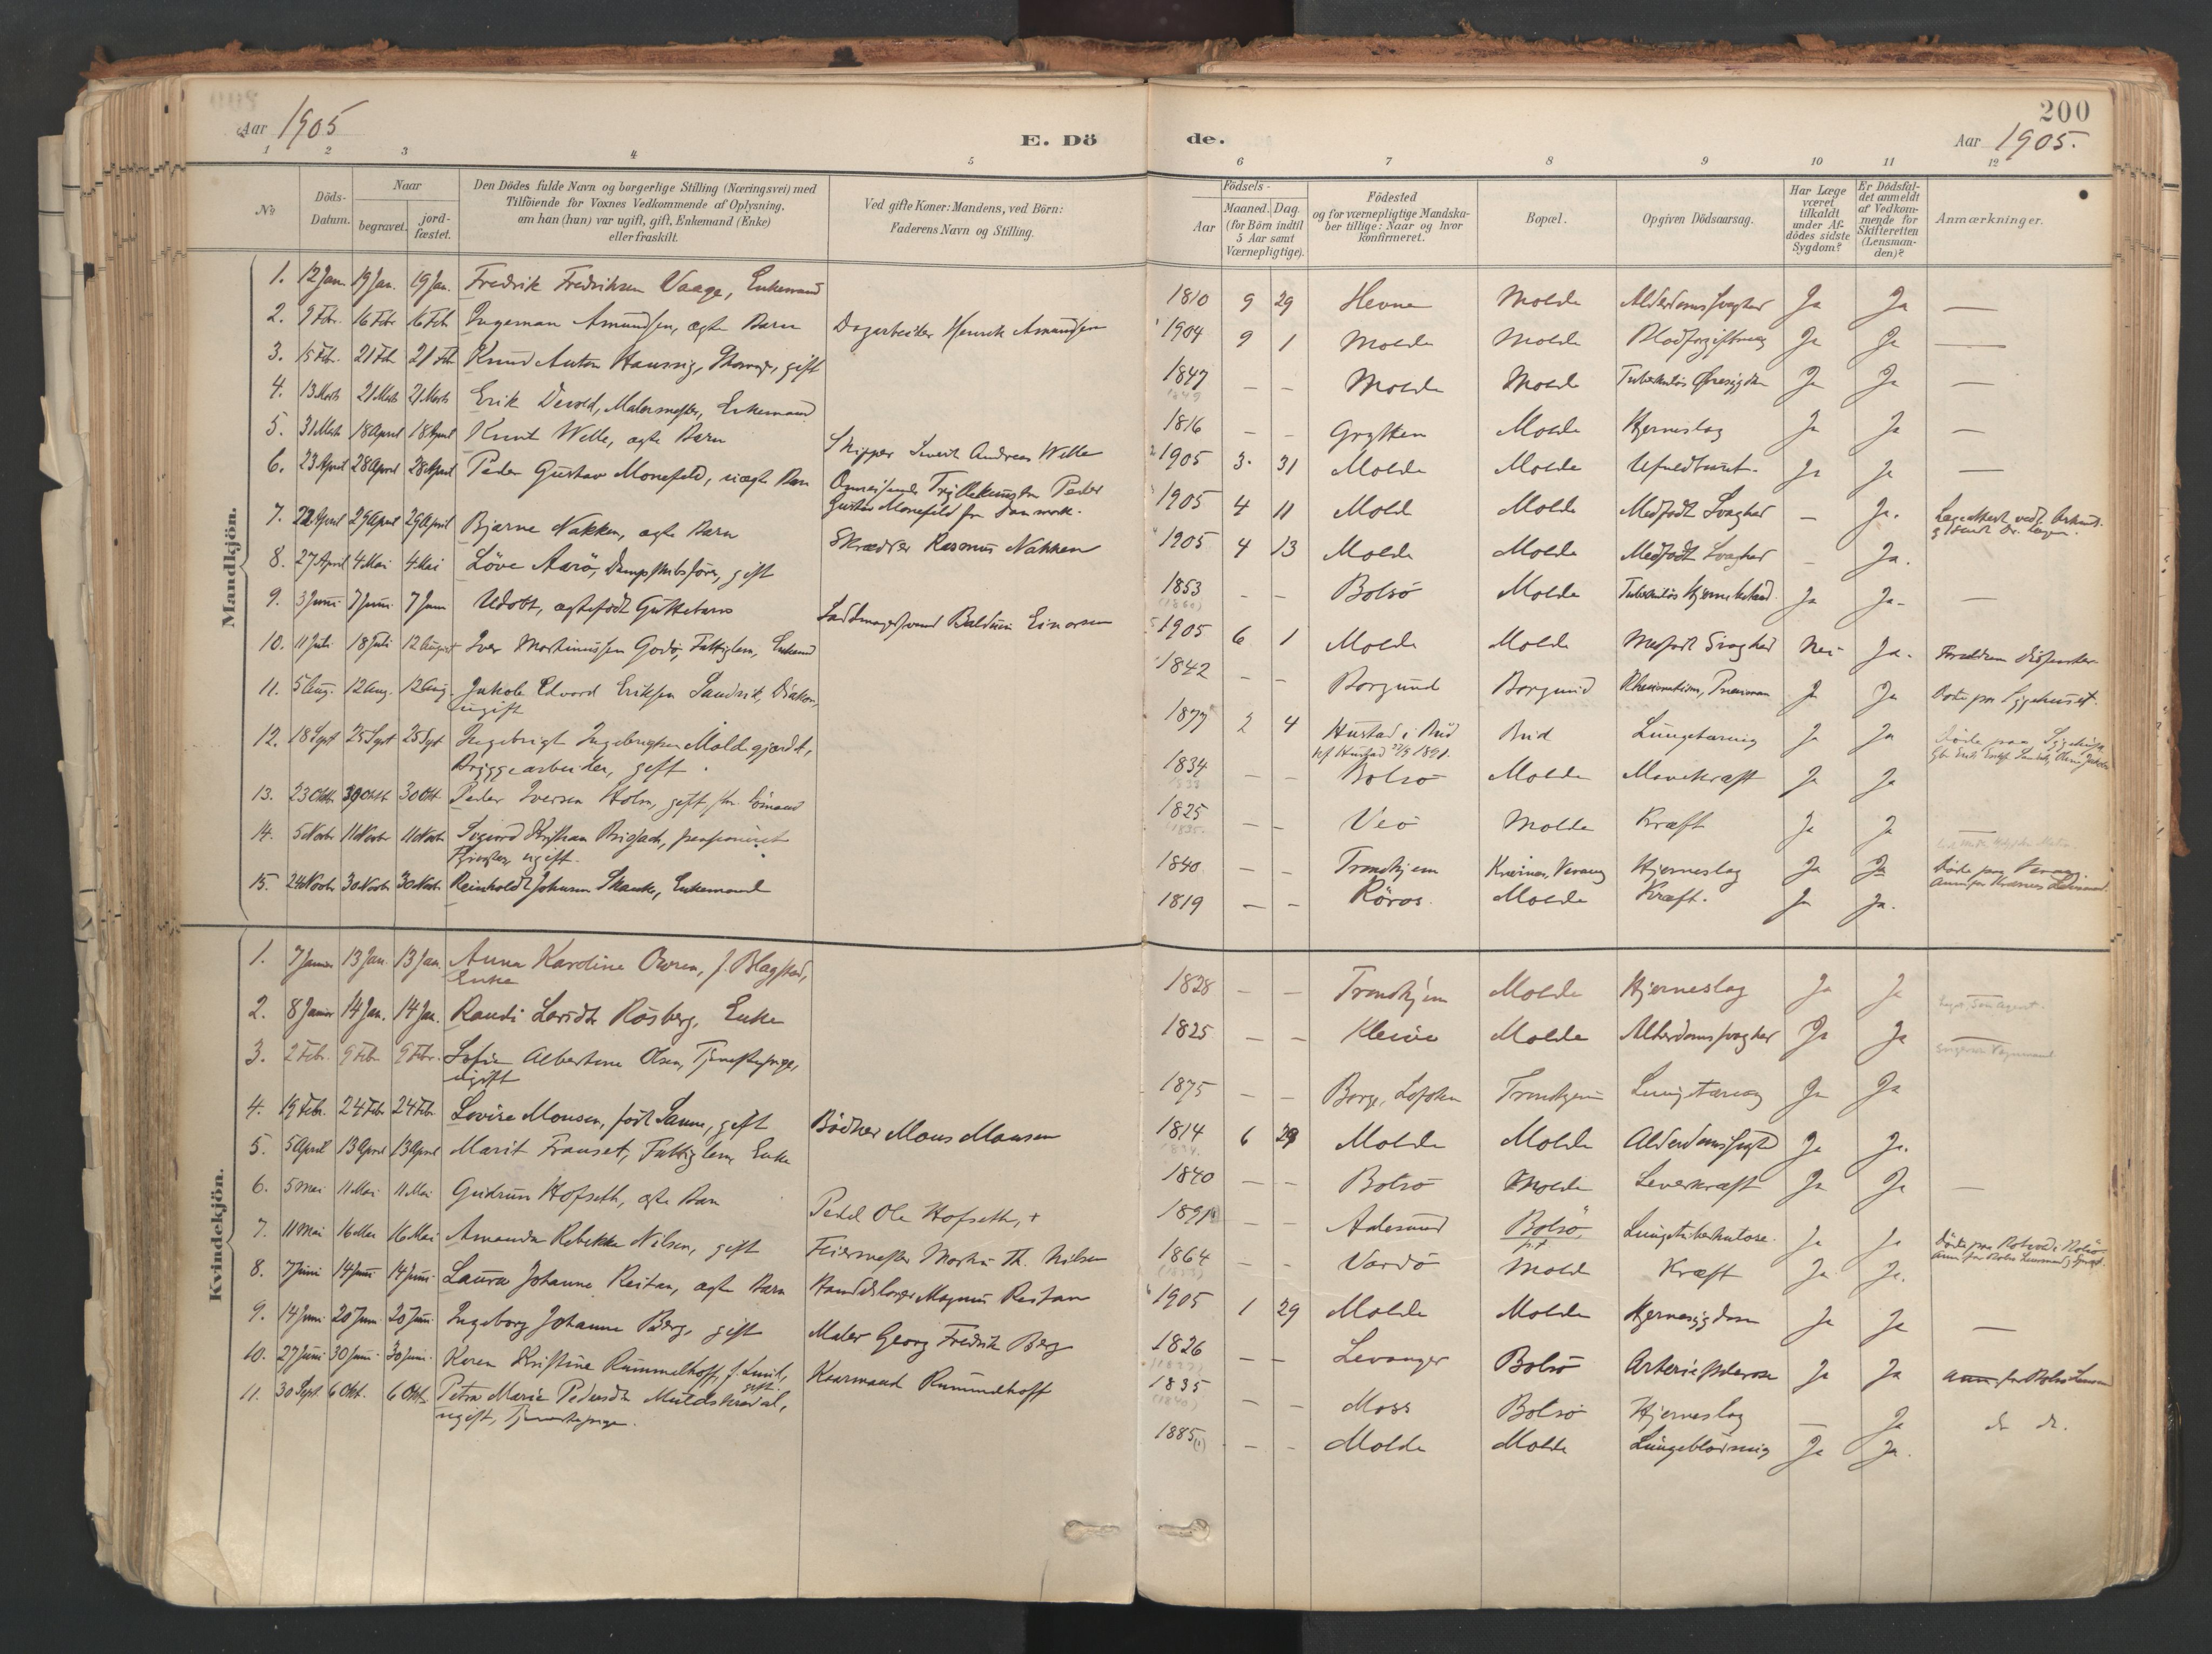 200
Aar 1905
E. Dö de.
Aar 1905.
1 2 3 4 5 6 7 8 9 10 11 12
No. Döds-Datum. Naar begravet. jord-fæstet.
Den Dödes fulde Navn og borgerlige Stilling (Næringsvei) med
Tilföiende for Voxnes Vedkommende af Oplysning,
om han (hun) var ugift, gift, Enkemand (Enke)
eller fraskilt.
Ved gifte Koner: Mandens, ved Börn:
Faderens Navn og Stilling.
Födsels-
Aar Maaned. Dag.
(for Börn indtil
5 Aar samt
Værnepligtige).
Födested
og for værnepligtige Mandska-
ber tillige: Naar og hvor
konfirmeret.
Bopæl.
Opgiven Dödsaarsag.
Har Læge
været
tilkaldt
under Af-
dödes sidste
Sygdom?
Er Dödsfal-
det anmeldt
af Vedkom-
mende for
Skifteretten
(Lensman-
den)?
Anmærkninger.
Mandkjön.
1. 12 Jan 19 Jan. 19 Jan. Fredrik Fredriksen Vaage, Enkemand 1810 9 29 Hevne Molde Alderdomssvaghed Ja Ja —
2. 9 Febr. 16 Febr 16 Feb Ingeman Amundsen, ægte Barn Dagarbeider Henrik Amundsen 1904 9 1 Molde Molde Blodforgiftning Ja Ja —
3. 15 Febr. 21 Feb 21 Feb Knud Anton Haussig, gift 1847 — — Molde Molde Tuberkulös Øresygdom Ja Ja —
4. 13 Marts 21 Marts 21 Marts Erik Devold, Malermester, Enkemand 1816 — — Grytten Molde Hjerneslag Ja Ja —
5. 31 Marts 18 April 18 April Knut Welle, ægte Barn Skipper Andreas Welle 1905 3. 31 Molde Molde Ufuldbaaret. Ja Ja —
6. 23 April 28 April 28 April Peder Gustav Monefeld, uægte Barn Omreisende Tryllekunstner Peder
Gustav Monefeld fra Danmark. 1905 4 11 Molde Molde Medfødt Svaghed — Ja.
7. 22 April 29 April 29 April Bjarne Nakken, ægte Barn Skrædder Rasmus Nakken 1905 4 13 Molde Molde Medfødt Svaghed — Ja.
8. 27 April 4 Mai 4 Mai Löve Aarö, Dampskibsförer, gift 1853 — — Bolsö Molde Tuberkulös Hjernebetænd. Ja Ja —
9. 3 Juni 7 Juni 7 Juni Udöbt, ægtefödt Guttebarn Baldvin Einarsen 1905 6 1 Molde Molde Medfødt Svaghed Nei Ja. Forældrene dissenter
10. 11 Juli 18 Juli 12 August Iver Martinussen Godø, Fattiglem, Enkemd 1842 — — Borgund Borgund Rheumatism, Pneumon Ja Ja Døde paa Sygehuset.
11. 5 Aug. 12 Aug. 12 Aug. Jakob Edvard Eriksen Sandvik, Diakon,
ugift 1877 2 4 Hustad i Bud
kf Hustad 27/9 1891. Bud Lungetæring Ja Ja Døde paa Sygehus
12. 18 Sept 25 Sept 25 Sept Ingebrigt Ingebrigtsen Moldegjærdt,
Bryggearbeider, gift 1834 — — Bolsö Molde Mavekræft Ja Ja
13. 23 Oktb 30 Oktb 30 Okt Peder Iversen Holm, gift, fhv. Sömand 1825 — — Veö Molde Kræft Ja Ja —
14. 5 Novbr 11 Novbr 11 Novbr Sigvard Kristian Brigsach, pensioneret
ugift. 1840 — — Trondhjem Hjerneslag Ja Ja
15. 24 Novbr 30 Novbr 30 Novbr Reinholdt Johann Skanke, Enkemand 1819 — — Röros. Molde Kræft. Ja Ja.
Kvindekjön.
1. 7 Januar 13 Jan. 13 Jan. Anna Karoline Owren, f. Blagstad,
Enke 1828 — — Trondhjem Molde Hjerneslag Ja Ja
2. 8 Januar 14 Jan. 14 Jan. Randi Larsdtr Rösberg, Enke 1825 — — Kleive Molde Alderdomssvaghed Ja Ja
3. 2 Febr. 9 Febr 9 Febr. Sofie Albertine Olsen, Tjenestepige,
ugift 1875 — — Borge, Lofoten Trondhjem Lungetæring Ja Ja
4. 19 Febr. 24 Febr 24 Febr Lovise Monsen, født Sanne, gift Bödker Mons Monsen 1814 6 29 Molde Molde Ja Ja.
5. 5 April 13 April 13 April Marit Frauset, Fattiglem, Enke 1840 — — Bolsö Molde Leverkræft Ja Ja —
6. 5 Mai 11 Mai 11 Mai Gudrun Hofseth, ægte Barn Pedel Ole Hofseth, + 1891 — — Aalesund Bolsö,
p.t. Lungetuberkulose. Ja Ja
7. 11 Mai 16 Mai 16 Mai Amanda Rebekka Nilsen, gift Feiermester Martin Th. Nilsen 1864 — — Vardö Molde Kræft Ja Ja.
8. 7 Juni 14 Juni 14 Juni Laura Johanne Reitan, ægte Barn Magnus Reitan 1905 1 29 Molde Molde Hjernesygdom Ja Ja —
9. 14 Juni 20 Juni 20 Juni Ingeborg Johanne Berg, gift Maler Georg Fredrik Berg 1826 — — Levanger Bolsö Arteriesklerose Ja Ja
10. 27 Juni 30 Juni 30 Juni Karen Kristine Rummelhoff,
gift. Rummelhoff 1835
(1840) — — Moss Bolsö Hjerneslag — Ja do do.
11. 30 Sept 6 Okt. 6 Okt. Petra Marie Pedersdtr Muldskredal,
ugift, Tjenestepige. 1885 — — Molde Molde Lungeblödning Ja Ja.